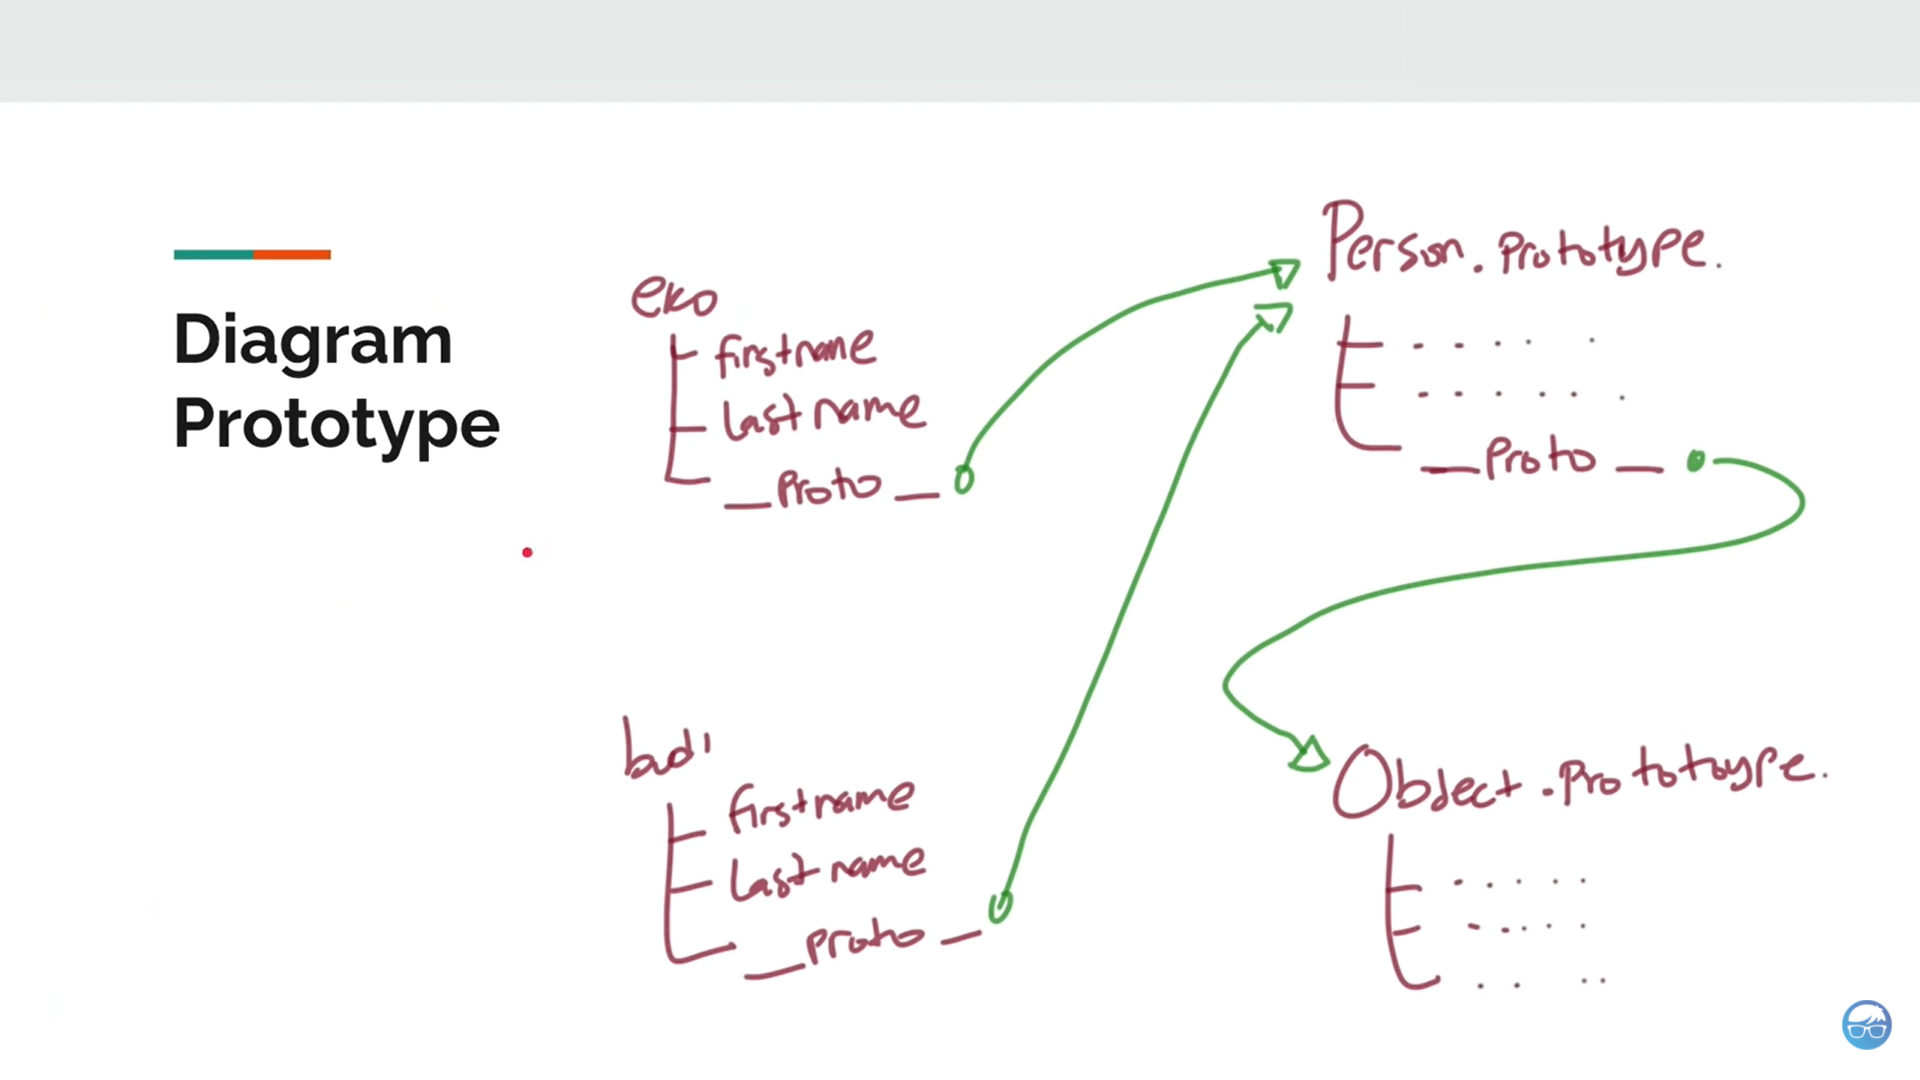 Diagram
Prototype
eko
firstname
lastname
__proto__
budi
firstname
lastname
__proto__
Person.prototype.
__proto__
Object.prototoype.